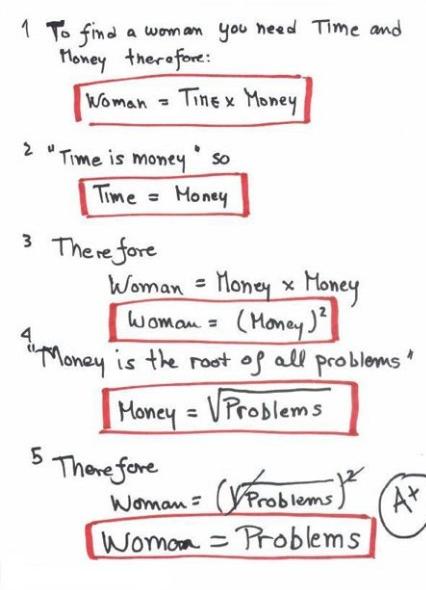 1 To find a woman you need Time and
Money therefore:
Woman = Time x Money
2 "Time is money" so
Time = Money
3 Therefore
Woman = Money x Money
Woman = (Money)²
4
"Money is the root of all problems"
Money = √Problems
5 Therefore
Woman = (√Problems)²
A+
Woman = Problems